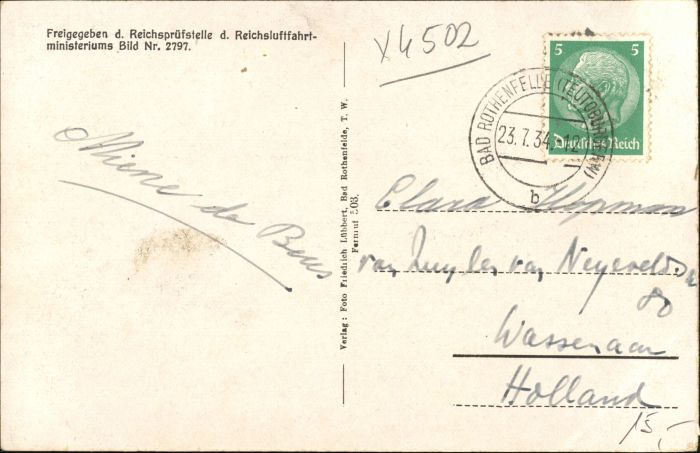 Freigegeben d. Reichsprüfstelle d. Reichsluftfahrt-
ministeriums Bild Nr. 2797.
x4502
5 5
Deutsches Reich
BAD ROTHENFELDE (TEUTOBURG. WALD)
23.7.34.-12
b
Miene de
Verlag: Foto Friedrich Lübbert, Bad Rothenfelde, T. W.
Fernruf 303.
Clara Hopman
van Zuylen van Nyevelt
80
Wassenaar
Holland
15,-